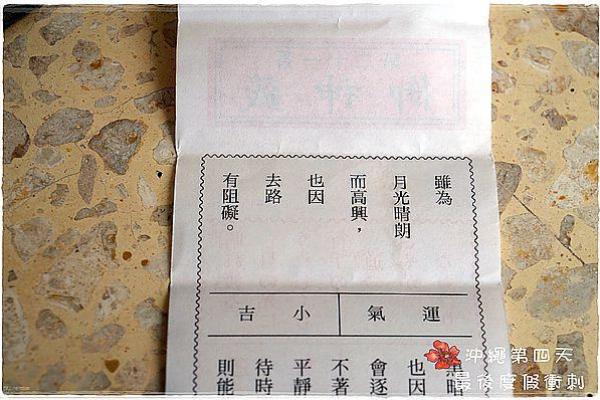 御神籤
雖為
月光晴朗
而高興，
也因
去路
有阻礙。
運氣
小吉
黑暗
也因
會逐
不著
平靜
待時
則能
沖繩第四天
最後度假衝刺